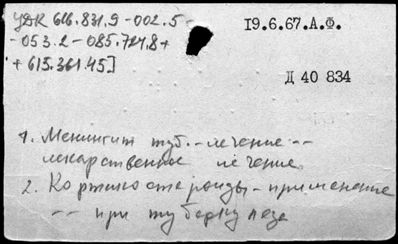 УДК 616.831.9-002.5-
-053.2-085.724.8+
+615.361.45]
19.6.67.А.Ф.
Д 40 834
1. Менингит туб.-лечение--
лекарственное лечение
2. Кортикостероиды-применение
-- при туберкулезе